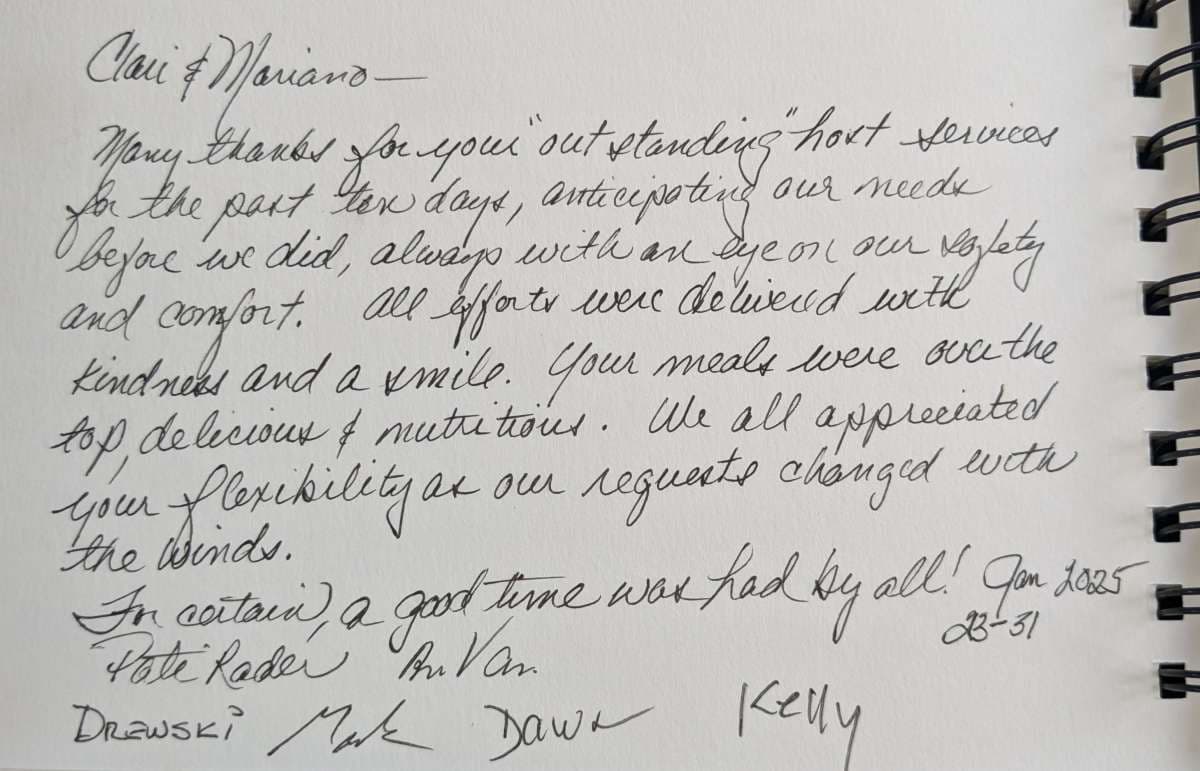 Clari & Mariano —
Many thanks for your "outstanding" host services
for the past ten days, anticipating our needs
before we did, always with an eye on our safety
and comfort. All efforts were delivered with
kindness and a smile. Your meals were over the
top, delicious & nutritious. We all appreciated
your flexibility as our requests changed with
the winds.
For certain, a good time was had by all! Jan 2025
23-31
Pate Rader Van
DREWSKi Mark Dawn Kelly